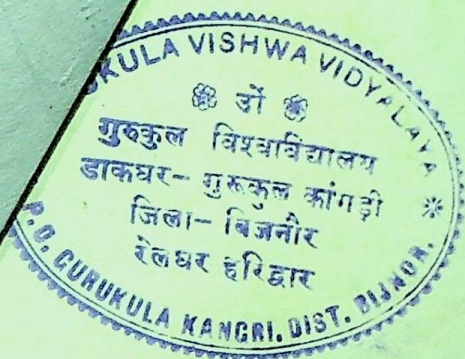 KULA VISHWA VIDYALAYA
ओं
गुरुकुल विश्वविद्यालय
डाकघर- गुरुकुल कांगड़ी
जिला- बिजनौर
रेलघर हरिद्वार
P.O. GURUKULA KANGRI. DIST. BIJNOR.